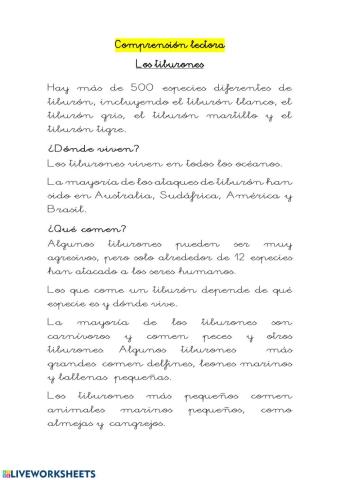 Comprensión lectora
Los tiburones
Hay más de 500 especies diferentes de
tiburón, incluyendo el tiburón blanco, el
tiburón gris, el tiburón martillo y el
tiburón tigre.
¿Dónde viven?
Los tiburones viven en todos los océanos.
La mayoría de los ataques de tiburón han
sido en Australia, Sudáfrica, América y
Brasil.
¿Qué comen?
Algunos tiburones pueden ser muy
agresivos, pero solo alrededor de 12 especies
han atacado a los seres humanos.
Los que come un tiburón depende de qué
especie es y dónde vive.
La mayoría de los tiburones son
carnívoros y comen peces y otros
tiburones. Algunos tiburones más
grandes comen delfines, leones marinos
y ballenas pequeñas.
Los tiburones más pequeños comen
animales marinos pequeños, como
almejas y cangrejos.
LIVEWORKSHEETS